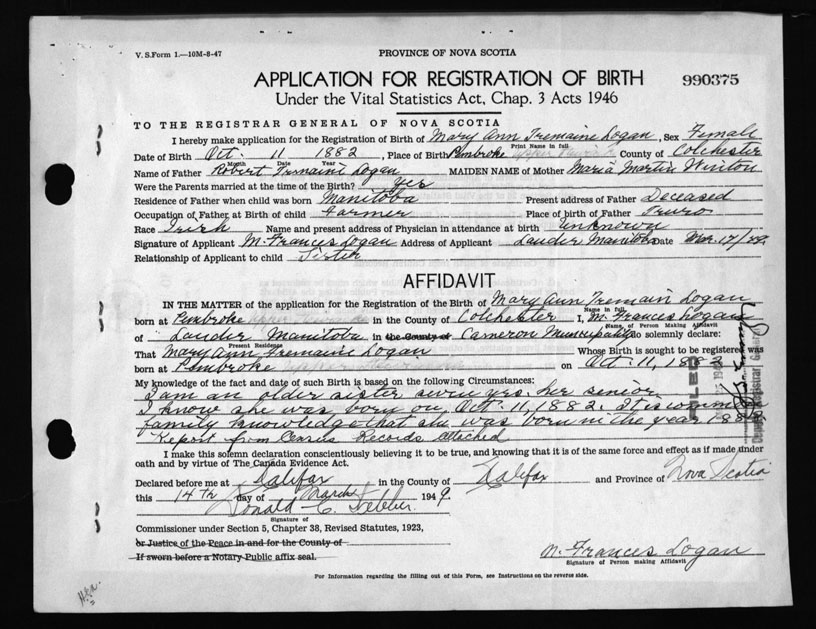 V. S. Form 1.—10M-8-47
PROVINCE OF NOVA SCOTIA
APPLICATION FOR REGISTRATION OF BIRTH
990375
Under the Vital Statistics Act, Chap. 3 Acts 1946
TO THE REGISTRAR GENERAL OF NOVA SCOTIA
I hereby make application for the Registration of Birth of Mary Ann Tremaine Logan, Sex Female
Print Name in full
Date of Birth Oct. 11 1882, Place of Birth Pembroke County of Colchester
Month Date Year
Name of Father Robert Tremaine Logan MAIDEN NAME of Mother Maria Martin Winton
Were the Parents married at the time of the Birth? Yes
Residence of Father when child was born Manitoba Present address of Father Deceased
Occupation of Father at Birth of child Farmer Place of birth of Father Truro
Race Irish Name and present address of Physician in attendance at birth Unknown
Signature of Applicant M. Frances Logan Address of Applicant Lauder Manitoba Date Mar. 17/48
Relationship of Applicant to child Sister
AFFIDAVIT
IN THE MATTER of the application for the Registration of the Birth of Mary Ann Tremain Logan
Name in full
born at Pembroke in the County of Colchester I, M. Frances Logan
Name of Person Making Affidavit
of Lauder Manitoba in the County of Cameron Municipality do solemnly declare:
Present Residence
That Mary Ann Tremaine Logan Whose Birth is sought to be registered was
born at Pembroke on Oct. 11, 1882
My knowledge of the fact and date of such Birth is based on the following Circumstances:
I am an older sister seven yrs. her senior
I know she was born on Oct. 11, 1882. It is common
family knowledge that she was born in the year 1882.
Report from Census Records attached
FILED
I make this solemn declaration conscientiously believing it to be true, and knowing that it is of the same force and effect as if made under
oath and by virtue of The Canada Evidence Act.
Declared before me at Halifax in the County of Halifax and Province of Nova Scotia
this 14th day of March 1949.
Donald C. Webber
Signature of
Commissioner under Section 5, Chapter 38, Revised Statutes, 1923,
or Justice of the Peace in and for the County of
If sworn before a Notary Public affix seal.
M. Frances Logan
Signature of Person making Affidavit
For Information regarding the filling out of this Form, see Instructions on the reverse side.